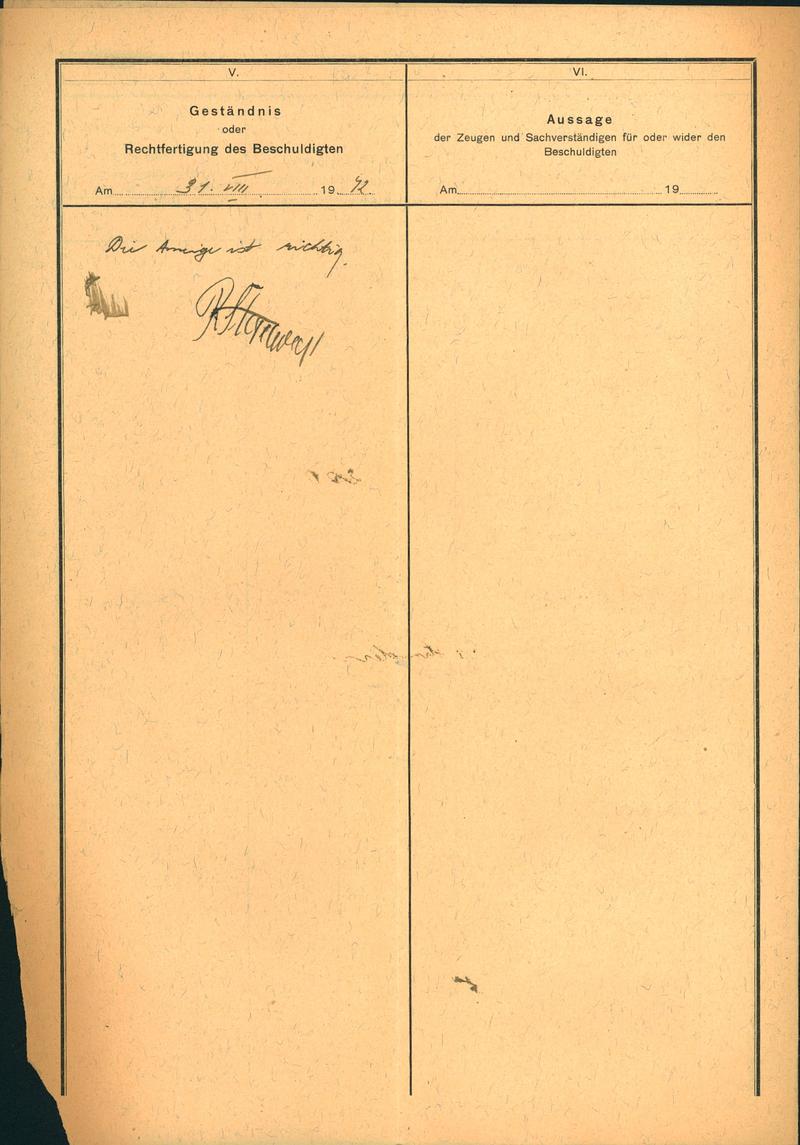 V.
Geständnis
oder
Rechtfertigung des Beschuldigten
Am 31. VIII 1942
Die Anzeige ist richtig.
VI.
Aussage
der Zeugen und Sachverständigen für oder wider den
Beschuldigten
Am 19